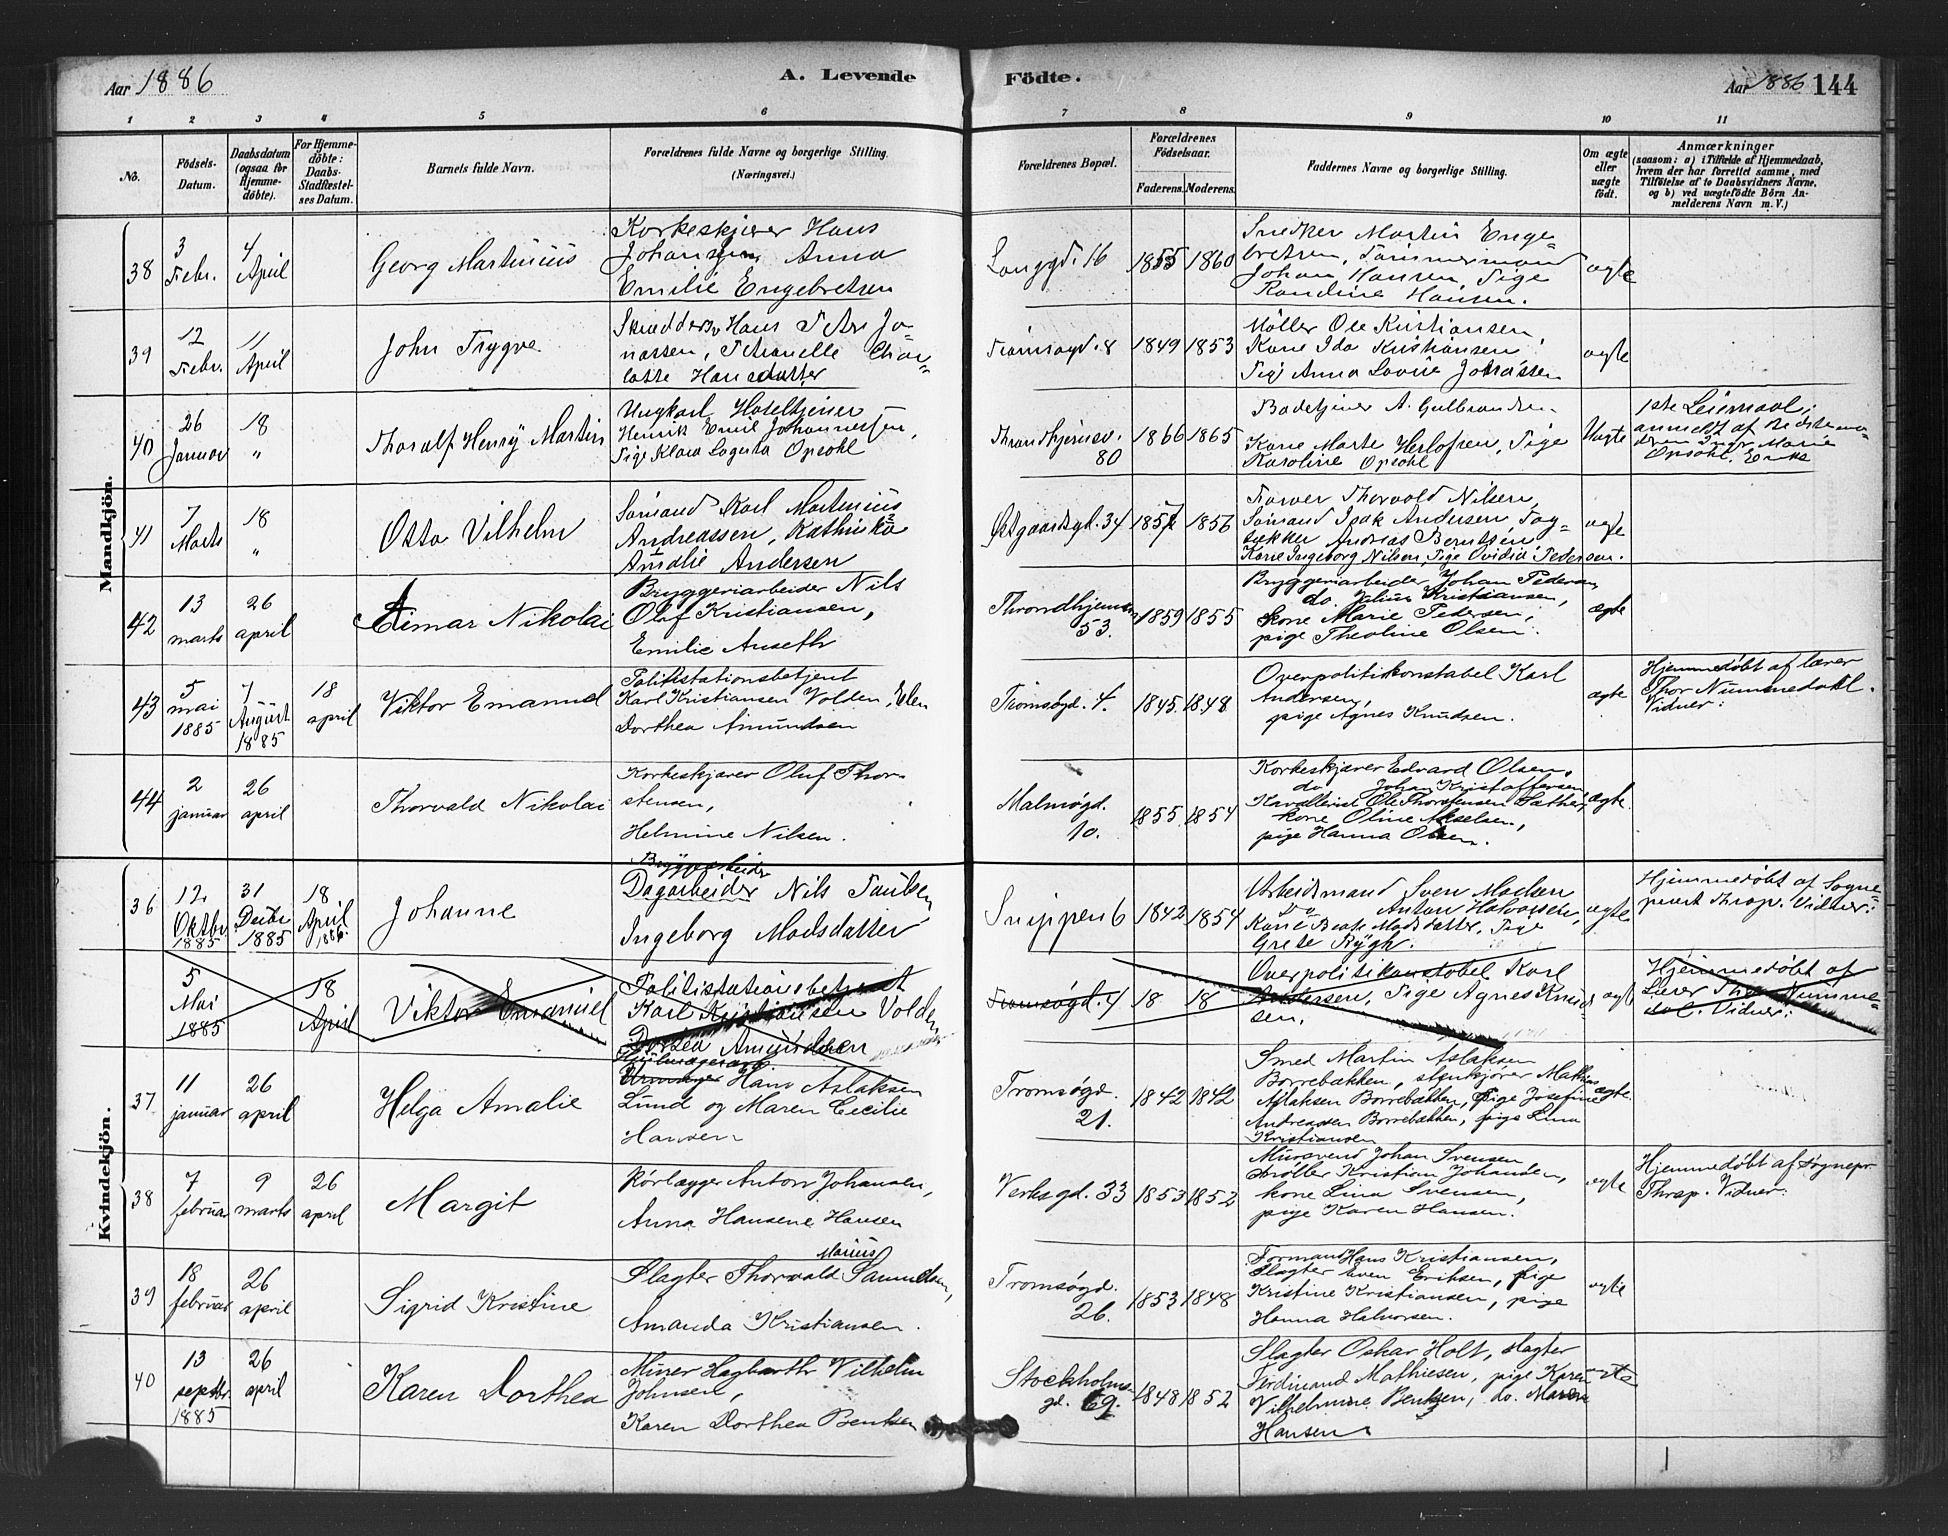 Aar 1886
A. Levende
Födte.
Aar 1886 144
1 2 3 4 5 6 7 8 9 10 11
No.
Födsels-
Datum.
Daabsdatum
(ogsaa for
Hjemme-
döbte).
For Hjemme-
döbte:
Daabs-
Stadfæstel-
ses Datum.
Barnets fulde Navn.
Forældrenes fulde Navne og borgerlige Stilling.
(Næringsvei.)
Forældrenes Bopæl.
Forældrenes
Födselsaar.
Faderens. Moderens.
Faddernes Navne og borgerlige Stilling.
Om ægte
eller
uægte
födt.
Anmærkninger
(saasom: a) i Tilfælde af Hjemmedaab,
hvem der har forrettet samme, med
Tilföielse af to Daabsvidners Navne,
og b) ved uægtefödte Börn An-
melderens Navn m. V.)
Mandkjön.
38
3
Febr.
4
April
Georg Martinius
Korkeskjærer Hans
Johansen, Anna
Emilie Engebretsen
Langgd. 16
1855
1860
Snedker Martin Enge-
bretsen, Tømmermand
Johan Hansen, Pige
Randine Hansen.
ægte
39
12
Febr.
11
April
John Trygve
Skrædder Hans Peter Jo-
nassen, Petronelle Char-
lotte Hansdatter
Tromsøgd. 8
1849
1853
Møller Ole Kristiansen,
Kone Ida Kristiansen,
Pige Anna Lovise Jonassen
ægte
40
26
Januar
18
"
Thoralf Henry Martin
Ungkarl Hoteltjener
Henrik Emil Johannessen,
Pige Klara Lagerta Opsahl
Throndhjemsv.
80
1866
1865
Badetjener A. Gulbrandsen.
Kone Marte Herlofsen, Pige
Karoline Opsahl
Uægte
1ste Leiermaal;
anmeldt af Bedstemo-
deren Inger Marie
Opsahl, Enke
41
7
Marts
18
"
Otto Vilhelm
Sømand Karl Martinius
Andreassen, Kathinka
Amalie Andersen
Østgaardsgd. 34
1857
1856
Farver Thorvald Nilsen,
Sømand Isak Andersen, Tag-
tækker Andreas Berntsen
Kone Ingeborg Nilsen, Pige Ovidia Pedersen.
ægte
42
13
marts
26
april
Eimar Nikolai
Bryggeriarbeider Nils
Olaf Kristiansen,
Emilie Anseth
Throndhjemsv.
53.
1859
1855
Bryggeriarbeider Johan Pedersen,
do Julius Kristiansen,
kone Marie Pedersen,
pige Theoline Olsen.
ægte
43
5
mai
1885
7
August
1885
18
april
Viktor Emanuel
Politistationsbetjent
Karl Kristiansen Volden, Elen
Dorthea Amundsen
Tromsøgd. 4.
1845.
1848
Overpolitikonstabel Karl
Andersen,
pige Agnes Knudsen.
ægte
Hjemmedøbt af lærer
Thor Nummedahl.
Vidner:
44
2
januar
26
april
Thorvald Nikolai
Korkeskjærer Oluf Thor-
stensen,
Helmine Nilsen.
Malmøgd.
10.
1855
1854
Korkeskjærer Edvard Olsen,
do Johan Kristoffersen,
Kavallerist Ole Thorstensen Sæther,
kone Oline Akselsen,
pige Hanna Olsen.
ægte.
Kvindekjön.
36
12
Oktbr
1885
31
Decbr
1885
18
April
1886.
Johanne
Bryggearbeider
Dagarbeider Nils Paulsen,
Ingeborg Madsdatter
Snippen 6
1842
1854
Arbeidsmand Sven Madsen
Do Anton Halvorsen,
Kone Beate Madsdatter, Pige
Grete Rygh.
ægte
Hjemmedøbt af Sogne-
præst Thrap. Vidner:
5
Mai
1885
18
April
Viktor Emanuel
Politistationsbetjent
Karl Kristiansen Volden
Dortea Amundsen
Tromsøgd. 4
18
18
Overpolitikonstabel Karl
Andersen, Pige Agnes Knud-
sen.
ægte
Hjemmedøbt af
Lærer Thor Numme-
dal. Vidner:
37
11
januar
26
april
Helga Amalie
Urmager Hans Aslaksen
Lund og Maren Cecilie
Hansen
Tromsøgd.
21.
1842
1842
Smed Martin Aslaksen
Borrebækken, stenkjører Mathias
Aslaksen Borrebækken, Pige Josefine
Andreassen Borrebækken, pige Lina
Kristiansen
ægte.
38
7
februar
9
marts
26
april
Margit
Rørlægger Anton Johansen,
Anna Hansine Hansen
Verksgd. 33
1853
1852
Mursvend Johan Svensen
Møller Kristian Johansen,
kone Lina Svensen,
pige Karen Hansen.
ægte
Hjemmedøbt af sognepr.
Thrap. Vidner:
39
18
februar
26
april
Sigrid Kristine
Marius
Slagter Thorvald Samuelsen,
Amanda Kristiansen.
Tromsøgd.
26.
1853
1848
Formand Hans Kristiansen,
Slagter Even Eriksen, pige
Kristine Kristiansen, pige
Hanna Halvorsen.
ægte
40
13
septbr.
1885
26
april
Karen Dorthea
Murer Hagbarth Vilhelm
Johnsen,
Karen Dorthea Bentsen
Stockholms-
gd. 69.
1848
1852
Slagter Oskar Holt, slagter
Ferdinand Mathiesen, pige Karen
Vilhelmine Bentsen, do. Maren
Hansen